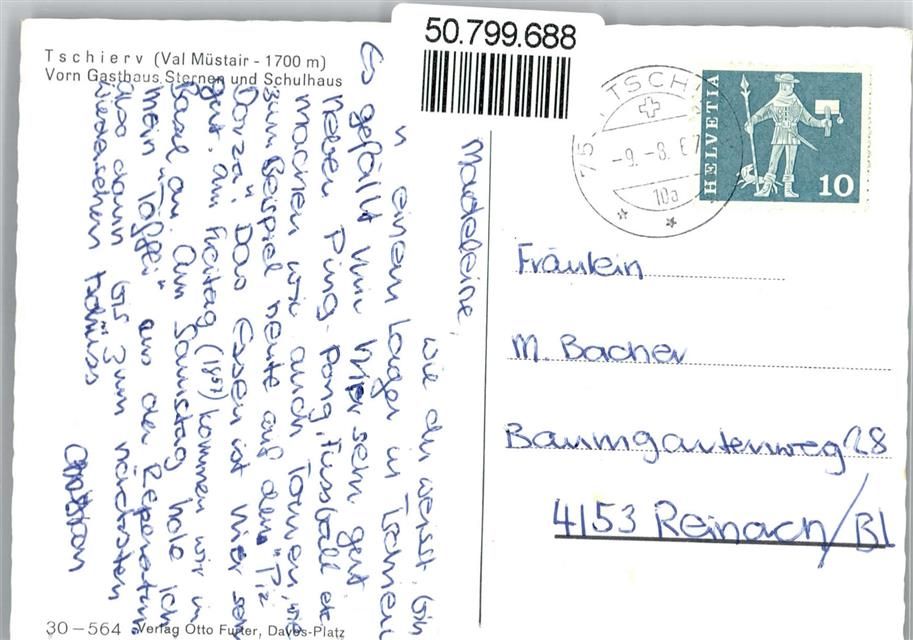 Tschierv (Val Müstair - 1700 m)
Vorn Gasthaus Sternen und Schulhaus
50.799.688
Madeleine,
wie du weisst, bin
in einem Lager in Tschierv
Es gefällt mir hier sehr gut
neben Ping-Pong, Fussball etc
machen wir auch Touren, wie
zum Beispiel heute auf den "Piz
Dora". Das Essen ist hier sehr
gut. Am Freitag (18⁵⁷) kommen wir in
Basel an. Am Samstag hole ich
mein "Töffli" aus der Reperatur
also dann bis zum nächsten
wiedersehen
Christian
TSCHIERV
-9.-8.67
10a
75
HELVETIA
10
Fräulein
M. Bacher
Baumgartenweg 28
4153 Reinach/BL
30-564 Verlag Otto Furter, Davos-Platz